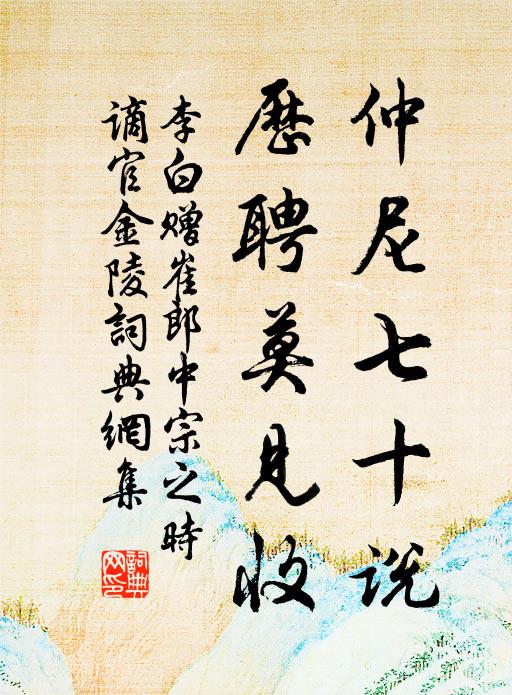 仲尼七十說
歷聘莫見收
李白贈崔郎中宗之時
謫官金陵詞典網集
詞典網印